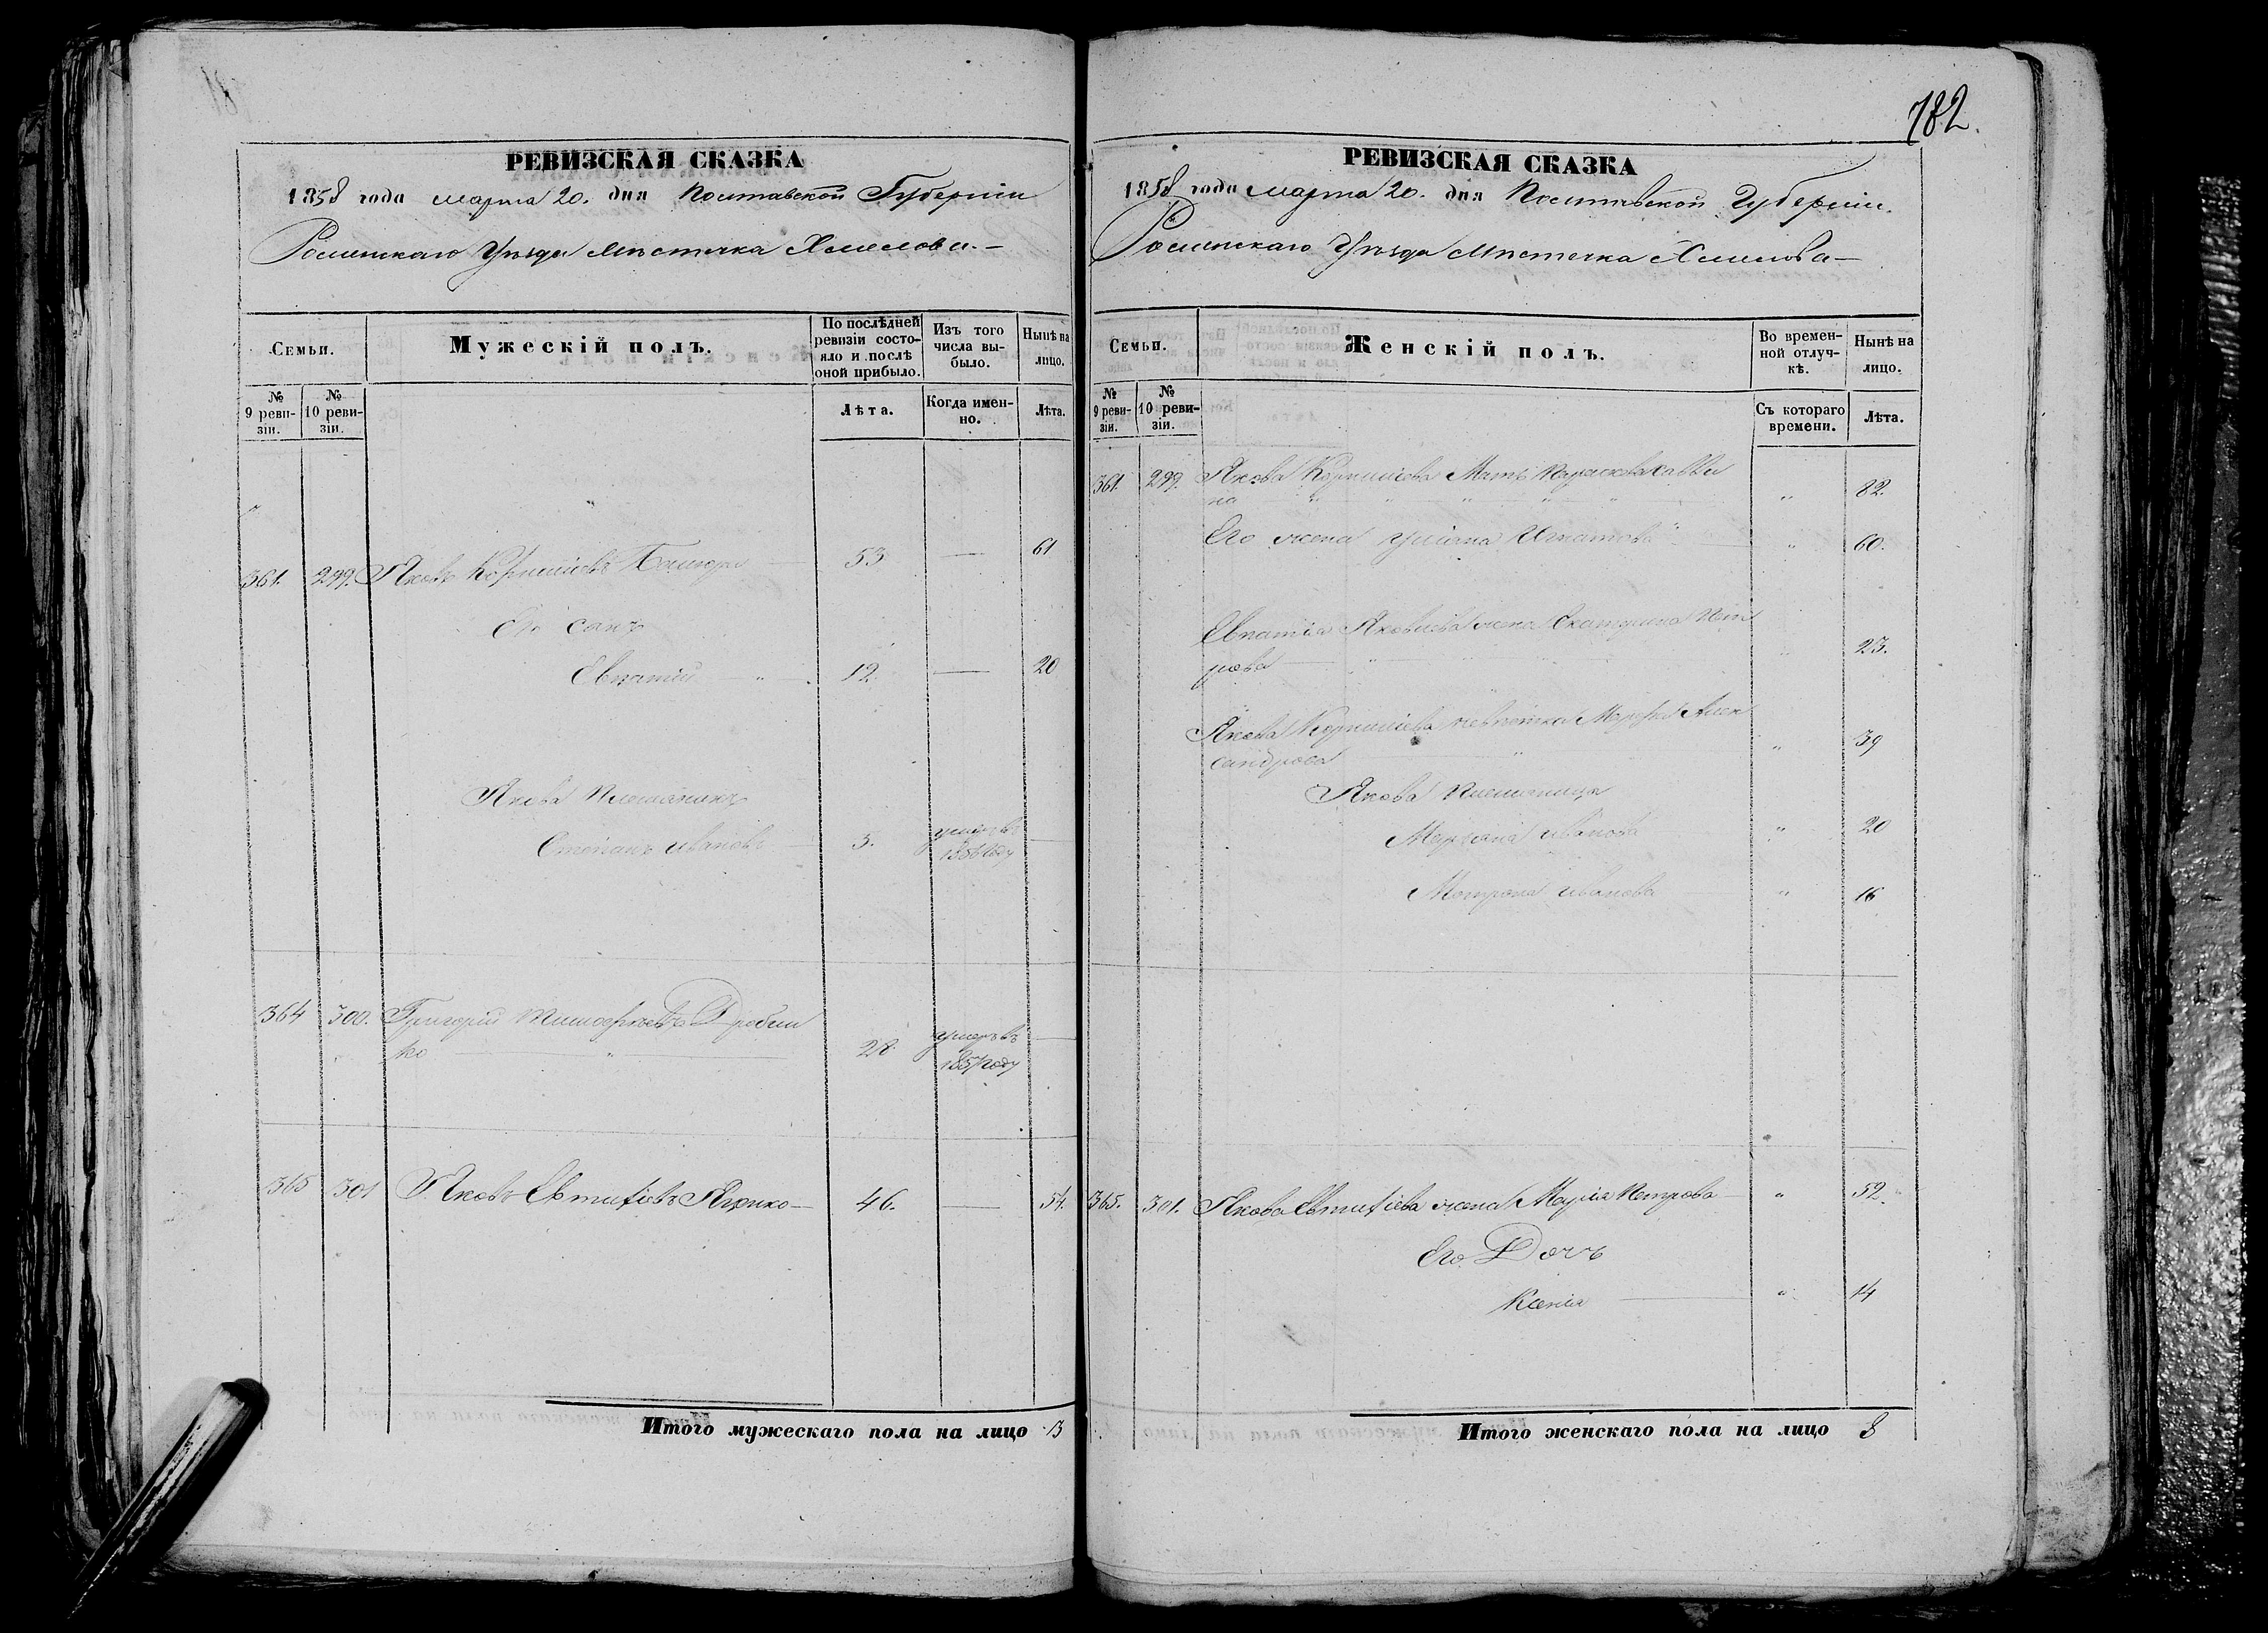 782.
РЕВИЗСКАЯ СКАЗКА
1858 года марта 20. дня Полтавской Губерніи
Роменскаго Уѣзда Мѣстечка Хмелова.—
Семьи.
Мужескій полъ.
По послѣдней ревизіи состояло и послѣ оной прибыло.
Изъ того числа выбыло.
Нынѣ на лицо.
№ 9 ревизіи.
№ 10 ревизіи.
Лѣта.
Когда именно.
Лѣта.
361. 299. Яковъ Корнилiевъ 53 — 61
Его сынъ
Евпатій — " — 12. — 20
Якова Племянникъ
Степанъ Ивановъ — 3. умеръ въ 1856 году —
364 300. Григорій Тимофѣевъ Дробин
ко — " — 28. умеръ въ 1857 году —
365 301 Яковъ Евтифіевъ Ященко — 46. — 54.
Итого мужескаго пола на лицо 3
РЕВИЗСКАЯ СКАЗКА
1858 года марта 20. дня Полтавской Губерніи.
Роменскаго Уѣзда Мѣстечка Хмелова —
Семьи.
Женскій полъ.
Во временной отлучкѣ.
Нынѣ на лицо.
№ 9 ревизіи.
№ 10 ревизіи.
Съ котораго времени.
Лѣта.
361. 299. Якова Корниліева Мать Параскева
на " " " " " " 82.
Его жена Уліана Игнатова " — " 60.
Евпатія Яковлева жена Екатерина Пет
рова — " " 23.
Якова Корниліева невѣстка Марфа Алек
сандрова " " 39
Якова Племянница
Маріана Иванова " 20
Мотрона Иванова — " 16
365. 301. Якова Евтифіева жена Марія Петрова — " 52.
Его Дочь
Ксенія — " 14
Итого женскаго пола на лицо 8